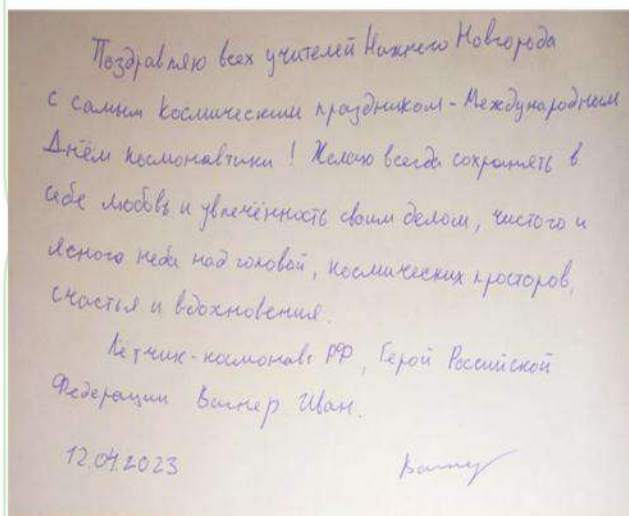 Поздравляю всех учителей Нижнего Новгорода
с самым космическим праздником - Международным
Днём космонавтики! Желаю всегда сохранять в
себе любовь и увлечённость своим делом, чистого и
ясного неба над головой, космических просторов,
счастья и вдохновения.
Лётчик-космонавт РФ, Герой Российской
Федерации Вагнер Иван.
12.04.2023